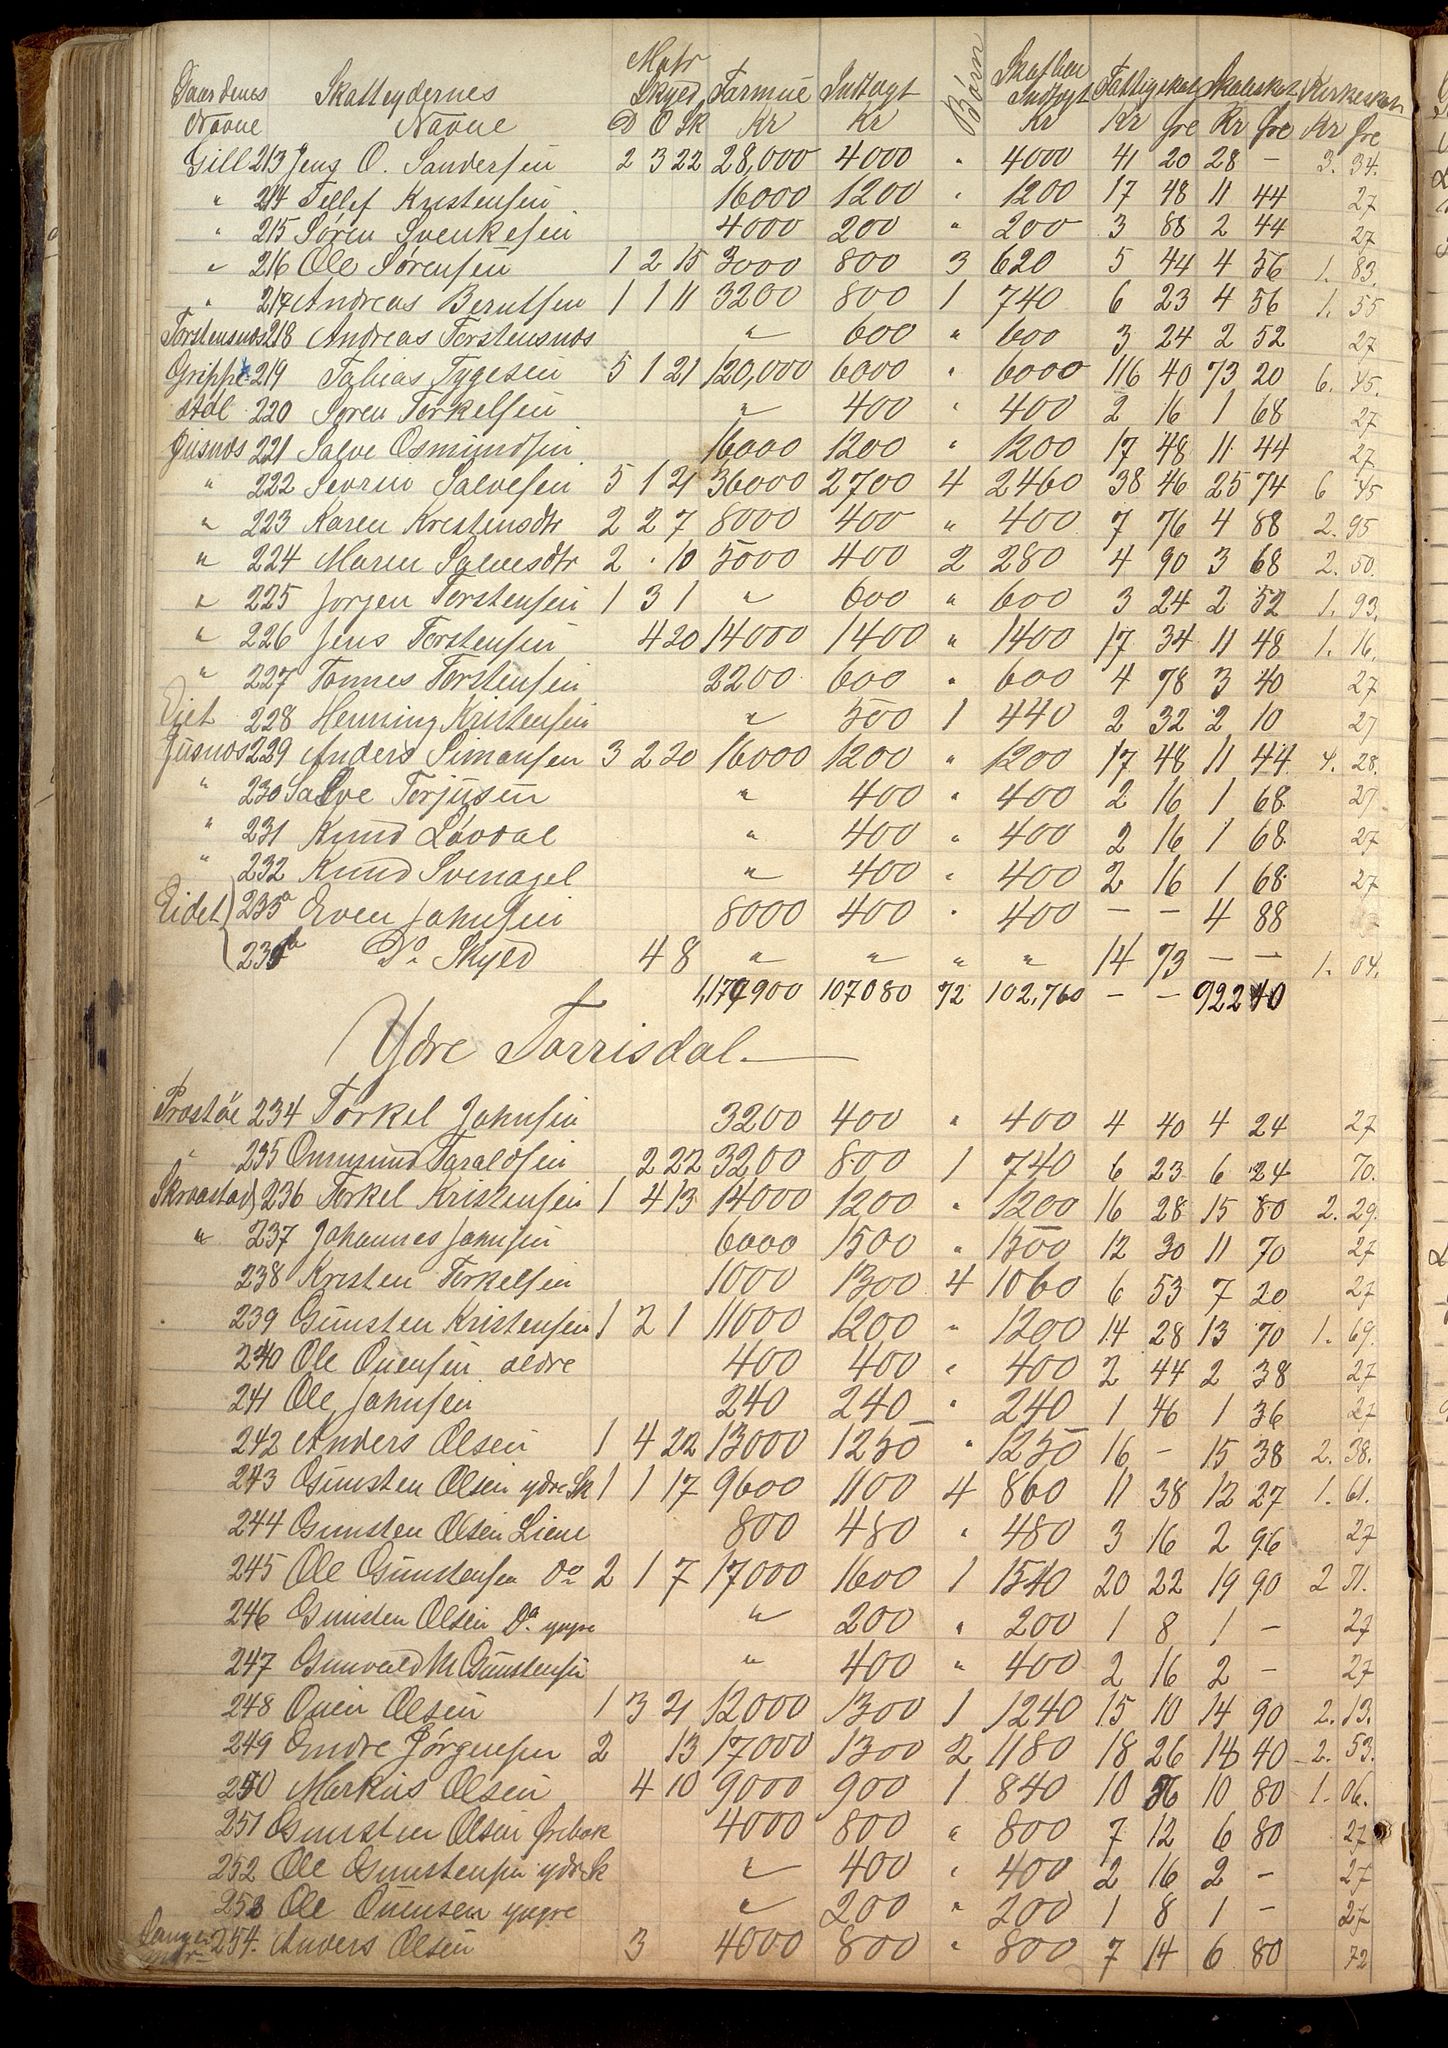 Gaardenes Navne Skatteydernes Navne Matr Skyld D O Sk Formue Kr Indtægt Kr Børn Skatbar Indtægt Kr Fattigskat Kr Øre Skoleskat Kr Øre Kirkeskat Kr Øre
Gill 213 Jens O. Sandersen 2 3 22 28,000 4000 " 4000 41 20 28 — 3. 34.
" 214 Tellef Kristensen 16000 1200 " 1200 17 48 11 44 27
" 215 Søren Svenkesen 4000 200 " 200 3 88 2 44 27
" 216 Ole Sørensen 1 2 15 3000 800 3 620 5 44 4 56 1. 83.
" 217 Andreas Berntsen 1 1 11 3200 800 1 740 6 23 4 56 1. 55
Torstensnæs 218 Andreas Torstensnæs " 600 " 600 3 24 2 52 27
Grippe 219 Tobias Tygesen 5 1 21 120,000 6000 " 6000 116 40 73 20 6. 45.
støl 220 Søren Torkelsen " 400 " 400 2 16 1 68 27
Jusnæs 221 Salve Osmundsen 16000 1200 " 1200 17 48 11 44 27
" 222 Severin Salvesen 5 1 21 36000 2700 4 2460 38 46 25 74 6 45
" 223 Karen Kristensdtr 2 2 7 8000 400 " 400 7 76 4 88 2. 95
" 224 Maren Salvesdtr 2 . 10 5000 400 2 280 4 90 3 68 2. 50.
" 225 Jørgen Torstensen 1 3 1 " 600 " 600 3 24 2 52 1. 93.
" 226 Jens Torstensen 4 20 14000 1400 " 1400 17 34 11 48 1. 16.
" 227 Tønnes Torstensen 2200 600 " 600 4 78 3 40 27
Eiet 228 Henning Kristensen " 500 1 440 2 32 2 10 27
Jusnæs 229 Anders Simonsen 3 2 20 16000 1200 " 1200 17 48 11 44 4. 28.
" 230 Salve Torjusen " 400 " 400 2 16 1 68 27
" 231 Knud Løvdal " 400 " 400 2 16 1 68 27
" 232 Knud Svenagel " 400 " 400 2 16 1 68 27
Eidet 233a Even Jahnsen 8000 400 " 400 — — 4 88
233b Do Skyld 4 8 " " " " 14 73 — — 1. 04.
1,174900 107080 72 102,760 — — 922 40
Ydre Torrisdal.
Præstøe 234 Torkel Jahnsen 3200 400 " 400 4 40 4 24 27
" 235 Ommund Taraldsen 2 22 3200 800 1 740 6 23 6 24 70.
Skraastad 236 Torkel Kristensen 1 4 13 14000 1200 " 1200 16 28 15 80 2. 29.
" 237 Johannes Jahnsen 6000 1500 " 1500 12 30 11 70 27
238 Kristen Torkelsen 1000 1300 4 1060 6 53 7 20 27
239 Gunsten Kristensen 1 2 1 11000 1200 " 1200 14 28 13 70 1. 69.
240 Ole Ouensen ældre 400 400 " 400 2 44 2 38 27
241 Ole Jahnsen 240 240 " 240 1 46 1 36 27
242 Anders Olsen 1 4 22 13000 1250 " 1250 16 — 15 38 2. 38.
243 Gunsten Olsen ydre Sk 1 1 17 9600 1100 4 860 11 38 12 27 1. 61.
244 Gunsten Olsen Liene 800 480 " 480 3 16 2 96 27
245 Ole Gunstensen Do 2 1 7 17000 1600 1 1540 20 22 19 90 2 71.
246 Gunsten Olsen Do yngre " 200 " 200 1 8 1 — 27
247 Gunvald M Gunstensen " 400 " 400 2 16 2 — 27
248 Ouen Olsen 1 3 21 12000 1300 1 1240 15 10 14 90 2. 13.
249 Endre Jørgensen 2 13 17000 1300 2 1180 18 26 18 40 2. 53.
250 Markus Olsen 4 10 9000 900 1 840 10 56 10 80 1. 06.
251 Gunsten Olsen Ørebæk 4000 800 " 800 7 12 6 80 27
252 Ole Gunstensen ydre Sk " 400 " 400 2 16 2 — 27
253 Ole Ouensen yngre " 200 " 200 1 8 1 — 27
254. Anders Olsen 3 4000 800 " 800 7 14 6 80 72